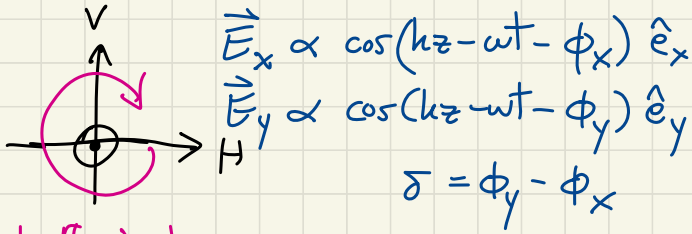 V
H
E⃗ₓ ∝ cos(kz-ωt-ϕₓ) êₓ
E⃗_y ∝ cos(kz-ωt-ϕ_y) ê_y
δ = ϕ_y - ϕₓ